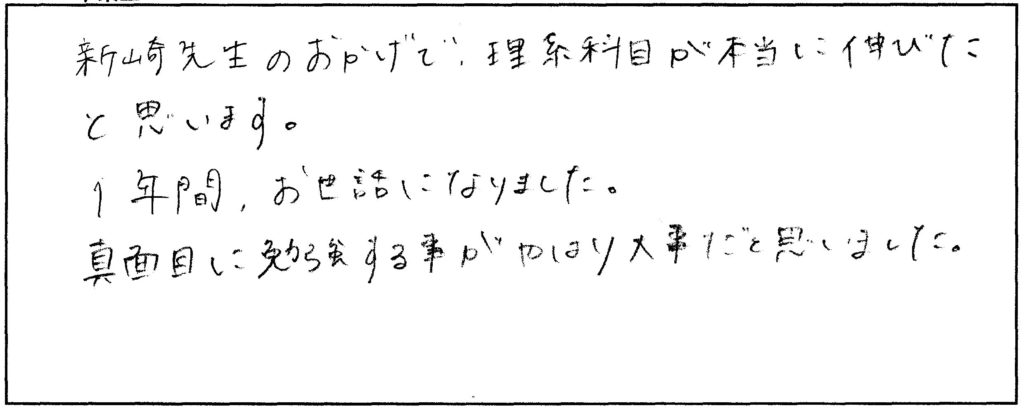 新崎先生のおかげで、理系科目が本当に伸びた
と思います。
1年間、お世話になりました。
真面目に勉強する事がやはり大事だと思いました。